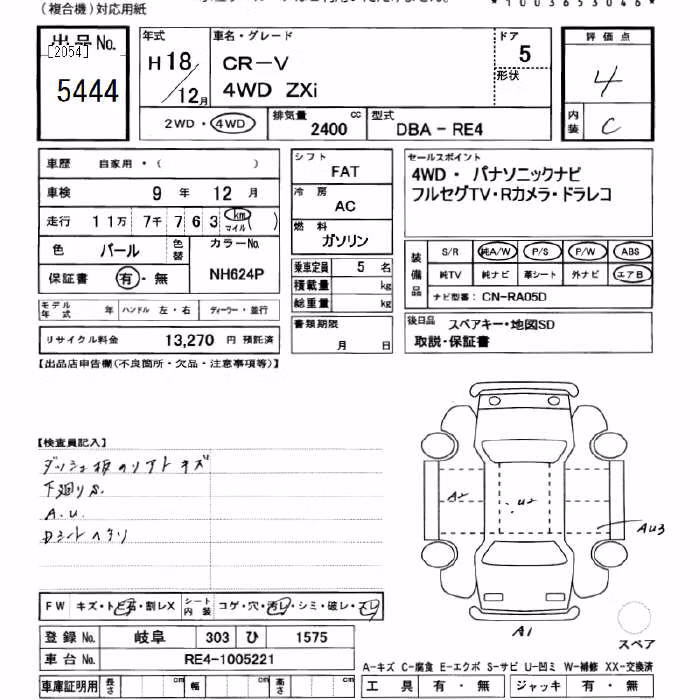 (複合機)対応用紙
*1003653046*
出品No.
[2054]
5444
年式
H18/12月
車名・グレード
CR-V
4WD ZXi
ドア
5
形状
評価点
4
内装
C
2WD・4WD
排気量
2400
cc
型式
DBA-RE4
車歴 自家用・( )
車検 9年 12月
走行 11万 7千 763 km マイル ( )
色 パール
色替
カラーNo.
NH624P
保証書 有・無
モデル年式 年
ハンドル 左・右
ディーラー・並行
リサイクル料金 13,270 円 預託済
シフト
FAT
冷房
AC
燃料
ガソリン
乗車定員 5 名
積載量 kg
総重量 kg
書類期限
月 日
セールスポイント
4WD・ パナソニックナビ
フルセグTV・Rカメラ・ドラレコ
装備品
S/R 純A/W P/S P/W ABS
純TV 純ナビ 革シート 外ナビ エアB
ナビ型番: CN-RA05D
後日品 スペアキー・地図SD
取説・保証書
【出品店申告欄(不良箇所・欠品・注意事項等)】
【検査員記入】
下廻りS.
A.U.
FW キズ・トビ石・割レX
シート内装 コゲ・穴・汚レ・シミ・破レ・スレ
登録No. 岐阜 303 ひ 1575
車台No. RE4-1005221
車庫証明用 長さ cm 幅 cm 高さ cm
A2
U2
AU3
A1
スペア
A-キズ C-腐食 E-エクボ S-サビ U-凹ミ W-補修 XX-交換済
工具 有・無 ジャッキ 有・無